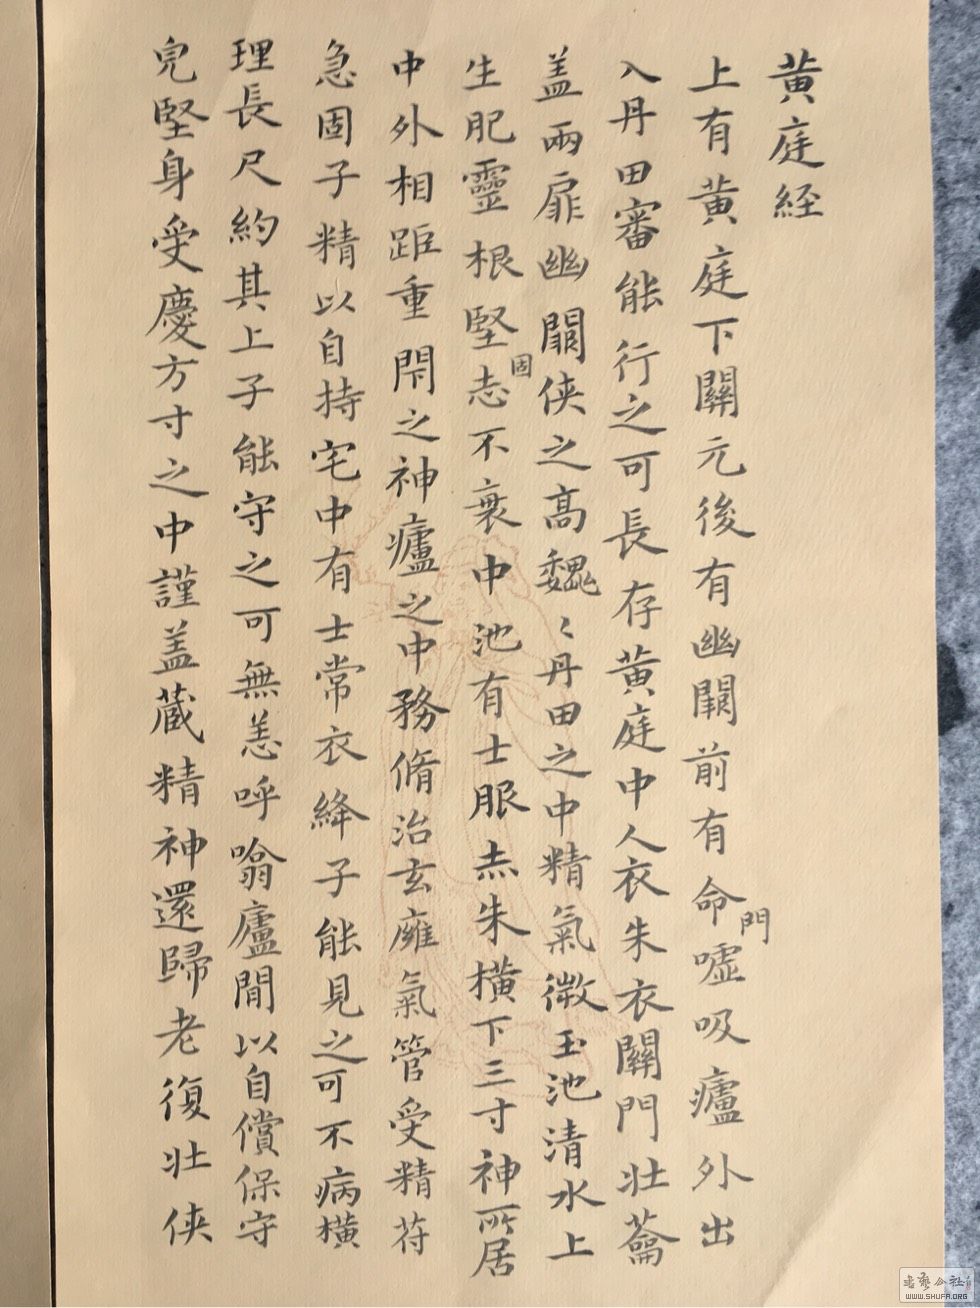 黄庭経
上有黄庭下關元後有幽闕前有命門噓吸廬外出
入丹田審能行之可長存黄庭中人衣朱衣關門壮籥
盖兩扉幽闕俠之高魏〻丹田之中精氣微玉池清水上
生肥靈根堅固志不衰中池有士服赤朱橫下三寸神所居
中外相距重閇之神廬之中務脩治玄㢕氣管受精苻
急固子精以自持宅中有士常衣絳子能見之可不病橫
理長尺約其上子能守之可無恙呼噏廬間以自償保守
完堅身受慶方寸之中謹盖蔵精神還歸老復壮俠
書藝公社
WWW.SHUFA.ORG